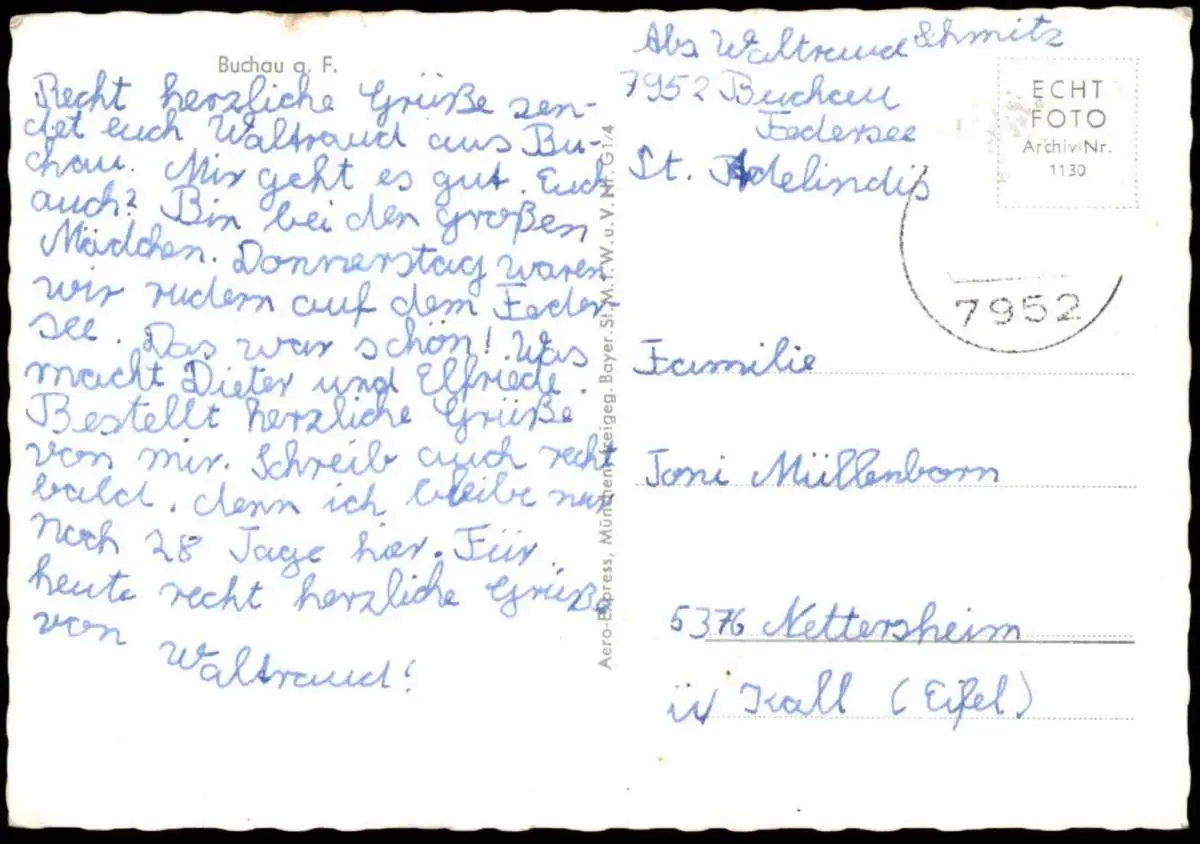 Buchau a. F.
Recht herzliche Grüße sen-
det euch Waltraud aus Bu-
chau. Mir geht es gut. Euch
auch? Bin bei den großen
Mädchen. Donnerstag waren
wir rudern auf dem Feder-
see. Das war schön! Was
macht Dieter und Elfriede.
Bestellt herzliche Grüße
von mir. Schreib auch recht
bald, denn ich bleibe nur
noch 28 Tage hier. Für
heute recht herzliche Grüße
von
Waltraud!
Aero-Express, München Freigeg. Bayer. St. M. f. W. u. V. Nr. G 1/4
Abs Waltraud Schmitz
7952 Buchau
Federsee
St. Adelindis
ECHT
FOTO
Archiv-Nr.
1130
7952
Familie
Toni Müllenborn
5376 Nettersheim
ü/ Kall (Eifel)